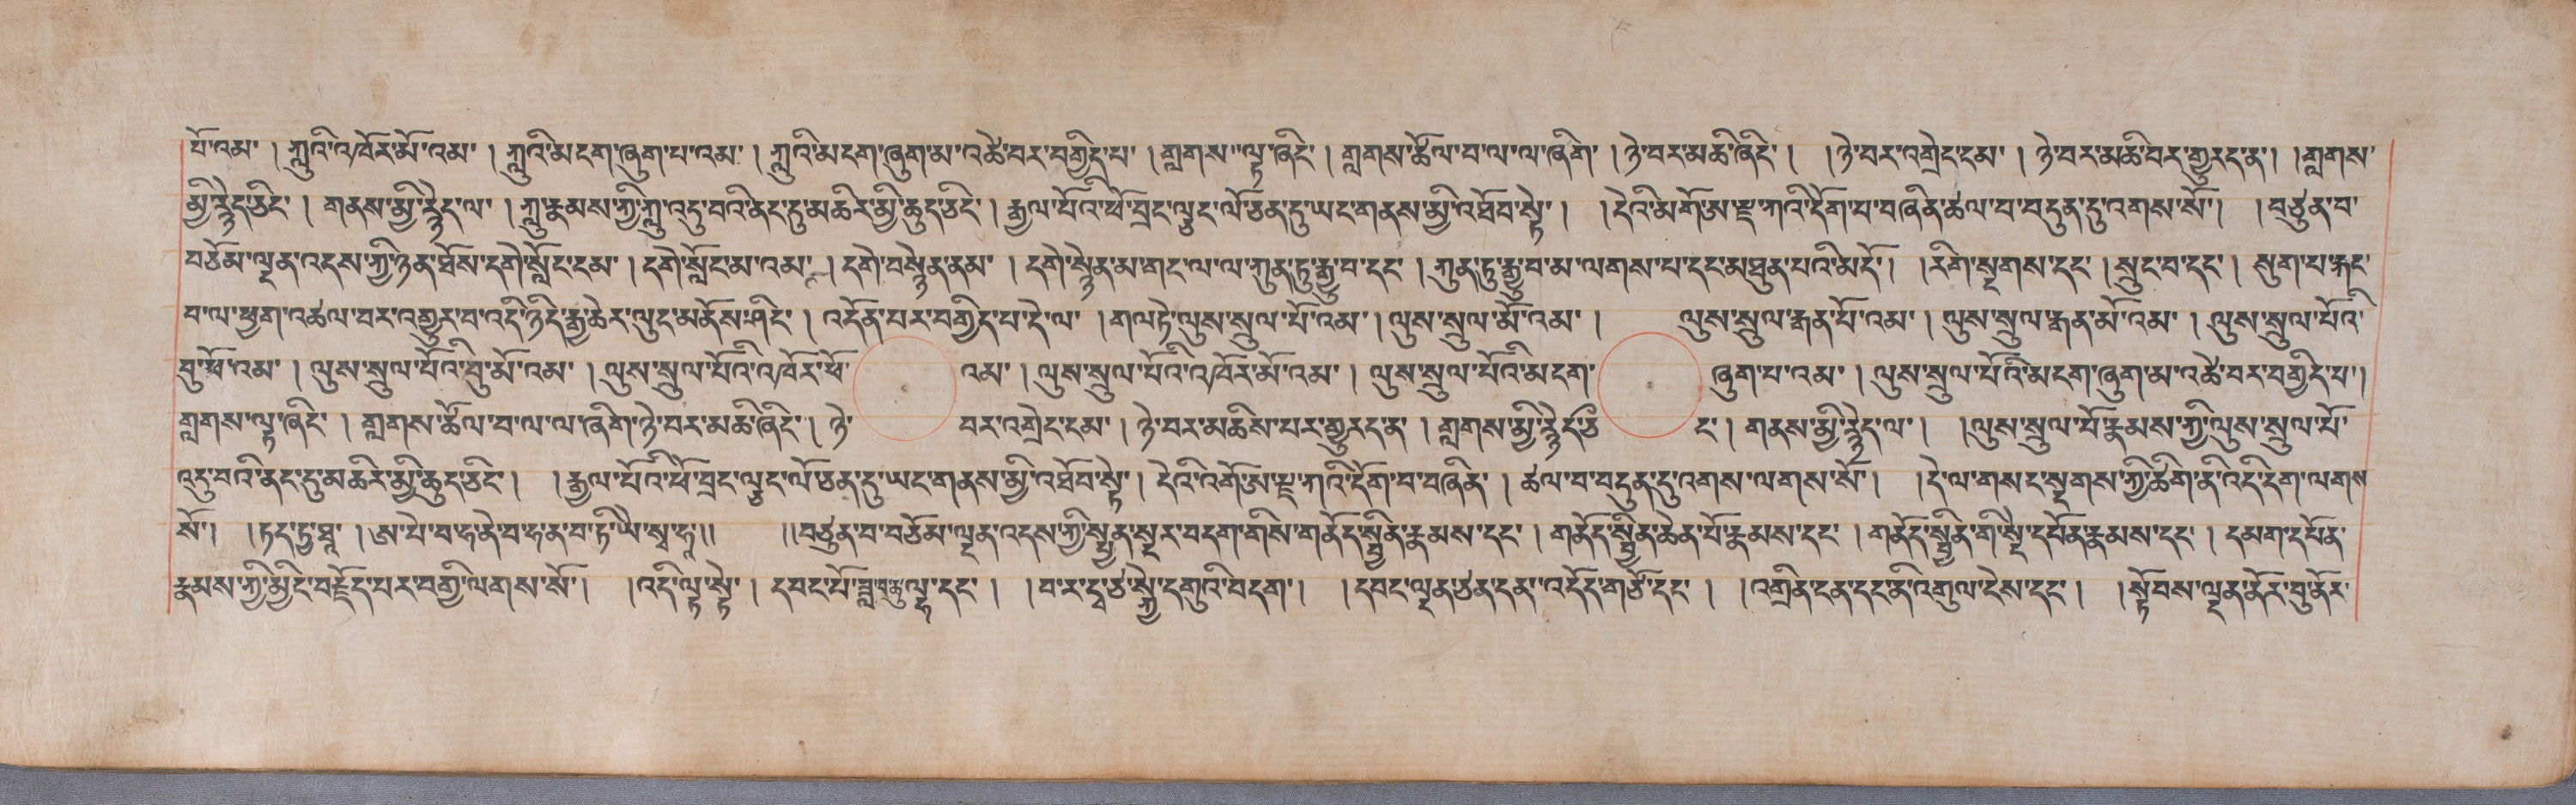 པོ་འམ། །ཀླུའི་འཁོར་མོ་འམ། །ཀླུའི་མངག་ཞུག་པ་འམ། །ཀླུའི་མངག་ཞུག་མ་འཚེ་བར་བགྱིད་པ། །གླགས་ལྟ་ཞིང་། །གླགས་ཚོལ་བ་ལ་ལ་ཞིག །ཉེ་བར་མཆི་ཞིང་། །ཉེ་བར་འགྲེང་ངམ། །ཉེ་བར་མཆི་བར་གྱུརད་ན། །གླགས་
མྱི་རྙེད་ཅིང་། །གནས་མྱི་རྙེད་ལ། །ཀླུ་རྣམས་ཀྱི་ཀླུ་འདུ་བའི་ནང་དུ་མཆིར་མྱི་ཆུད་ཅིང་། །རྒྱལ་པོའི་ཕོ་བྲང་ལྕང་ལོ་ཅན་དུ་ཡང་གནས་མྱི་འཐོབ་སྟེ། །དེའི་མགོ་ཨ་རྫ་ཀའི་དོག་པ་བཞིན་ཚལ་པ་བདུན་དུ་འགས་སོ། །བཙུན་བ་
བཅོམ་ལྡན་འདས་ཀྱི་ཉན་ཐོས་དགེ་སློང་ངམ། །དགེ་སློང་མ་འམ། །དགེ་བསྙེན་ནམ། །དགེ་སྙེན་མ་གང་ལ་ལ་ཀུན་ཏུ་རྒྱུ་བ་དང་། །ཀུན་ཏུ་རྒྱུ་བ་མ་ལགས་པ་དང་མཐུན་པའི་མདོ། །རིག་སྔགས་དང་། །སྲུང་བ་དང་། །སུག་པ་རྐང་
བ་ལ་ཕྱག་འཚལ་བར་འགྱུར་བ་འདི་ཉིད་རྒྱ་ཆེར་ལུང་མནོས་ཤིང་། །འདོན་པར་བགྱིད་པ་དེ་ལ། །གལ་ཏེ་ལུས་སྲུལ་པོ་འམ། །ལུས་སྲུལ་མོ་འམ། །ལུས་སྲུལ་རྒན་པོ་འམ། །ལུས་སྲུལ་རྒན་མོ་འམ། །ལུས་སྲུལ་པོའི་
བུ་ཕོ་འམ། །ལུས་སྲུལ་པོའི་བུ་མོ་འམ། །ལུས་སྲུལ་པོའི་འཁོར་ཕོ་འམ། །ལུས་སྲུལ་པོའི་འཁོར་མོ་འམ། །ལུས་སྲུལ་པོའི་མངག་ཞུག་པ་འམ། །ལུས་སྲུལ་པོའི་མངག་ཞུག་མ་འཚེ་བར་བགྱིད་པ།
གླགས་ལྟ་ཞིང་། །གླགས་ཚོལ་བ་ལ་ལ་ཞིག་ཉེ་བར་མཆི་ཞིང་། །ཉེ་བར་འགྲེང་ངམ། །ཉེ་བར་མཆིས་པར་གྱུརད་ན། །གླགས་མྱི་རྙེད་ཅིང་། །གནས་མྱི་རྙེད་ལ། །ལུས་སྲུལ་པོ་རྣམས་ཀྱི་ལུས་སྲུལ་པོ་
འདུ་བའི་ནང་དུ་མཆིར་མྱི་ཆུད་ཅིང་། །རྒྱལ་པོའི་ཕོ་བྲང་ལྕང་ལོ་ཅན་དུ་ཡང་གནས་མྱི་འཐོབ་སྟེ། །དེའི་འགོ་ཨ་རྫ་ཀའི་དོག་བ་བཞིན། །ཚལ་བ་བདུན་དུ་འགས་ལགས་སོ། །དེ་ལ་གསང་སྔགས་ཀྱི་ཚིག་ནི་འདི་དག་ལགས
སོ། །ཏད་ཏྱ་ཐཱ། །ཨ་པེ་བ་ཧ་ནེ་བ་ཧ་ན་བ་ཏི་ཡེ་སྭ་ཧཱ།། །།བཙུན་བ་བཅོམ་ལྡན་འདས་ཀྱི་སྤྱན་སྔར་བདག་གིས་གནོད་སྦྱིན་རྣམས་དང་། །གནོད་སྦྱིན་ཆེན་པོ་རྣམས་དང་། །གནོད་སྦྱིན་གི་སྡེ་དཔོན་རྣམས་དང་། །དམག་དཔོན་
རྣམས་ཀྱི་མྱིང་བརྗོད་པར་བགྱི་ལགས་སོ། །འདི་ལྟ་སྟེ། །དབང་པོ་ཟླ་བ་ཆུ་ལྷ་དང་། །བ་ར་དྭ་ཙ་སྐྱེ་དགུའི་བདག །དབང་ལྡན་ཙན་དན་འདོད་གཙོ་དང་། །འགྲིན་ངན་དང་ནི་འགུལ་ངེས་དང་། །སྟོབས་ལྡན་ནོར་བུ་ནོར་